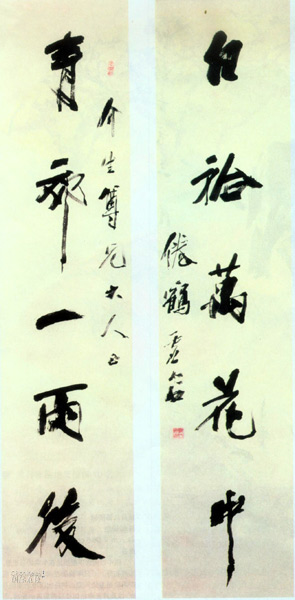 紅袷萬花中
倦鶴
介生尊兄大人正
青郊一雨後